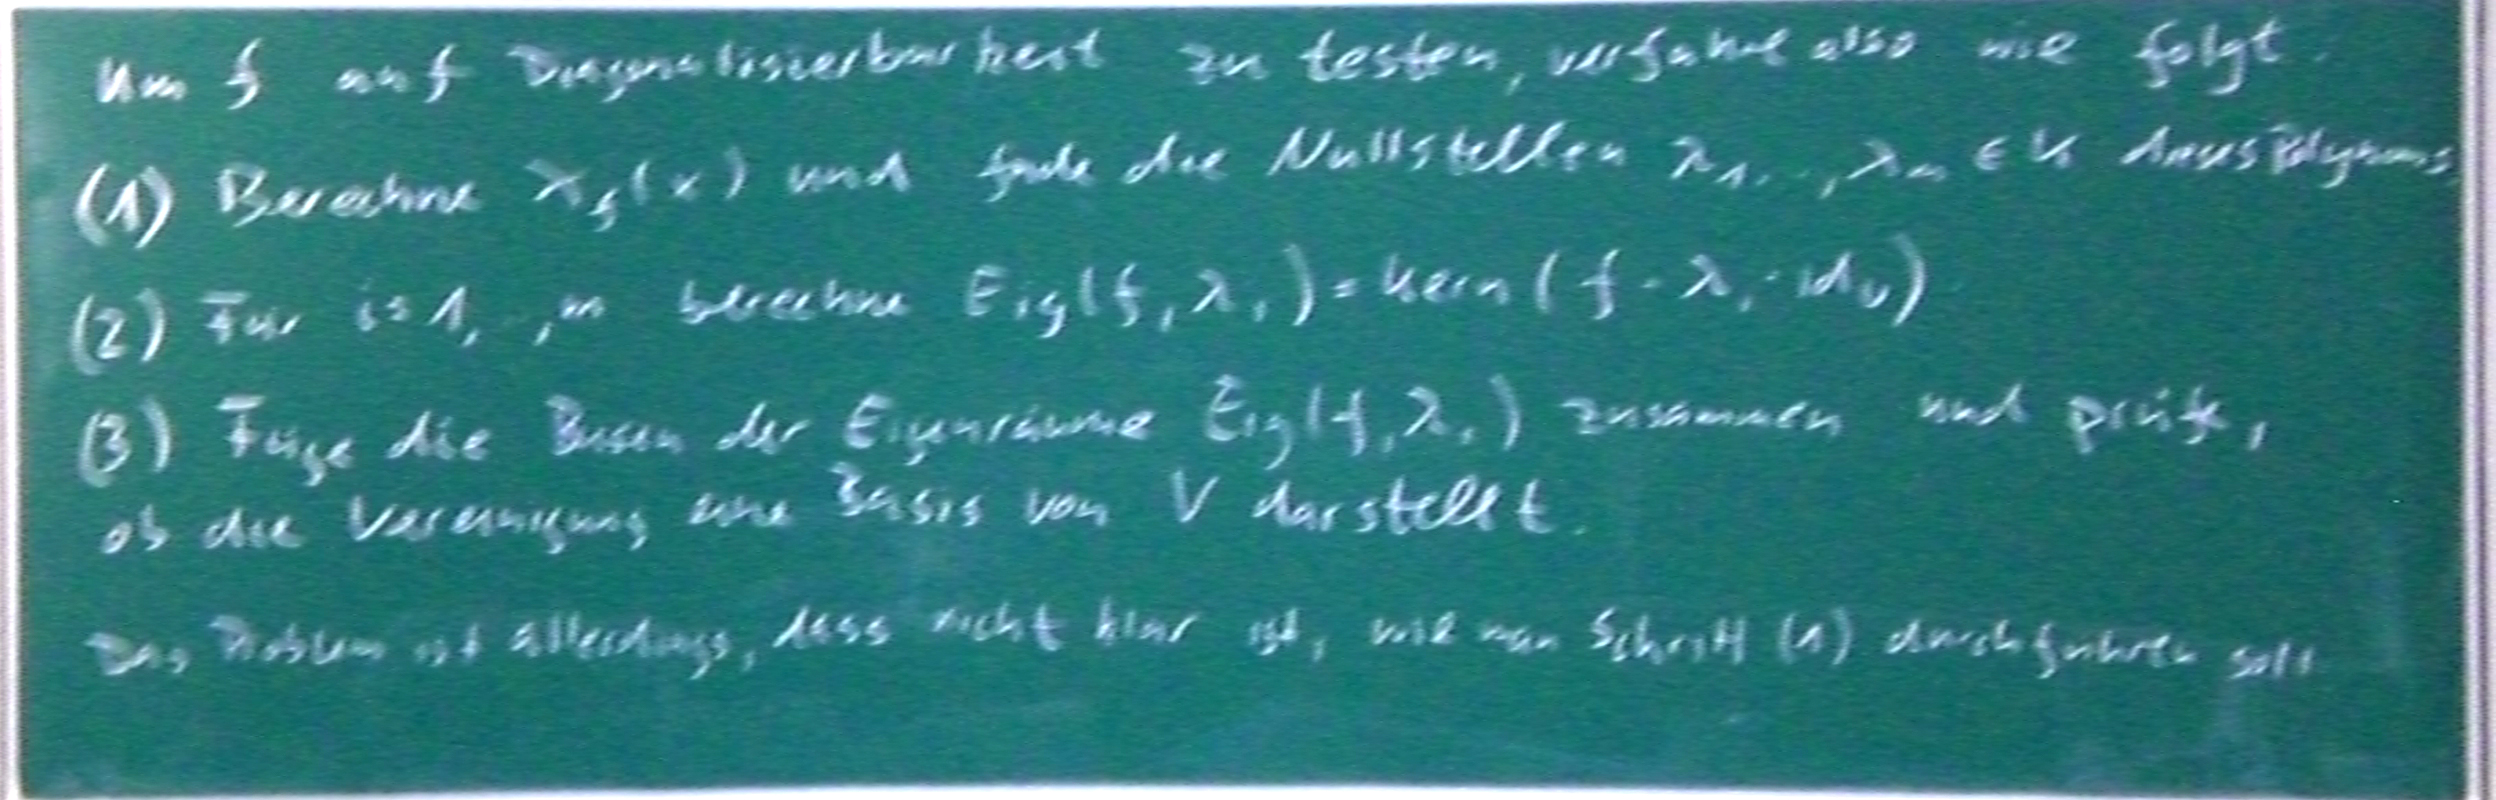 Um f auf Diagonalisierbarkeit zu testen, verfahre also wie folgt.
(1) Berechne χ_f(x) und finde die Nullstellen λ_1,..,λ_m ∈ K dieses Polynoms.
(2) Für i=1,..,m berechne Eig(f,λ_i)=Kern(f-λ_i·id_V)
(3) Füge die Basen der Eigenräume Eig(f,λ_i) zusammen und prüfe,
ob die Vereinigung eine Basis von V darstellt.
Das Problem ist allerdings, dass nicht klar ist, wie man Schritt (1) durchführen soll